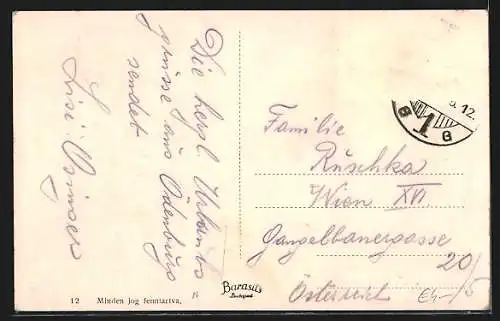 Die herzl. Urlaubs
grüsse aus Ödenburg
sendet
Familie
Ruschka
Wien XVI
Ganglbauergasse
20/5
Österreich
12 Minden jog fenntartva.
Barasits
Budapest
1
G G
12.